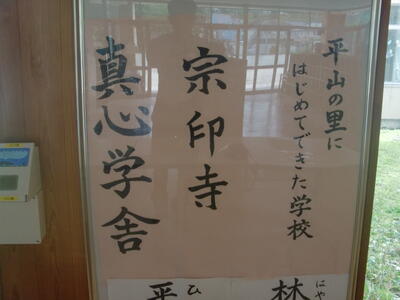 平山の里に
はじめてできた学校
宗印寺
真心学舎
林
にや
平
ひ